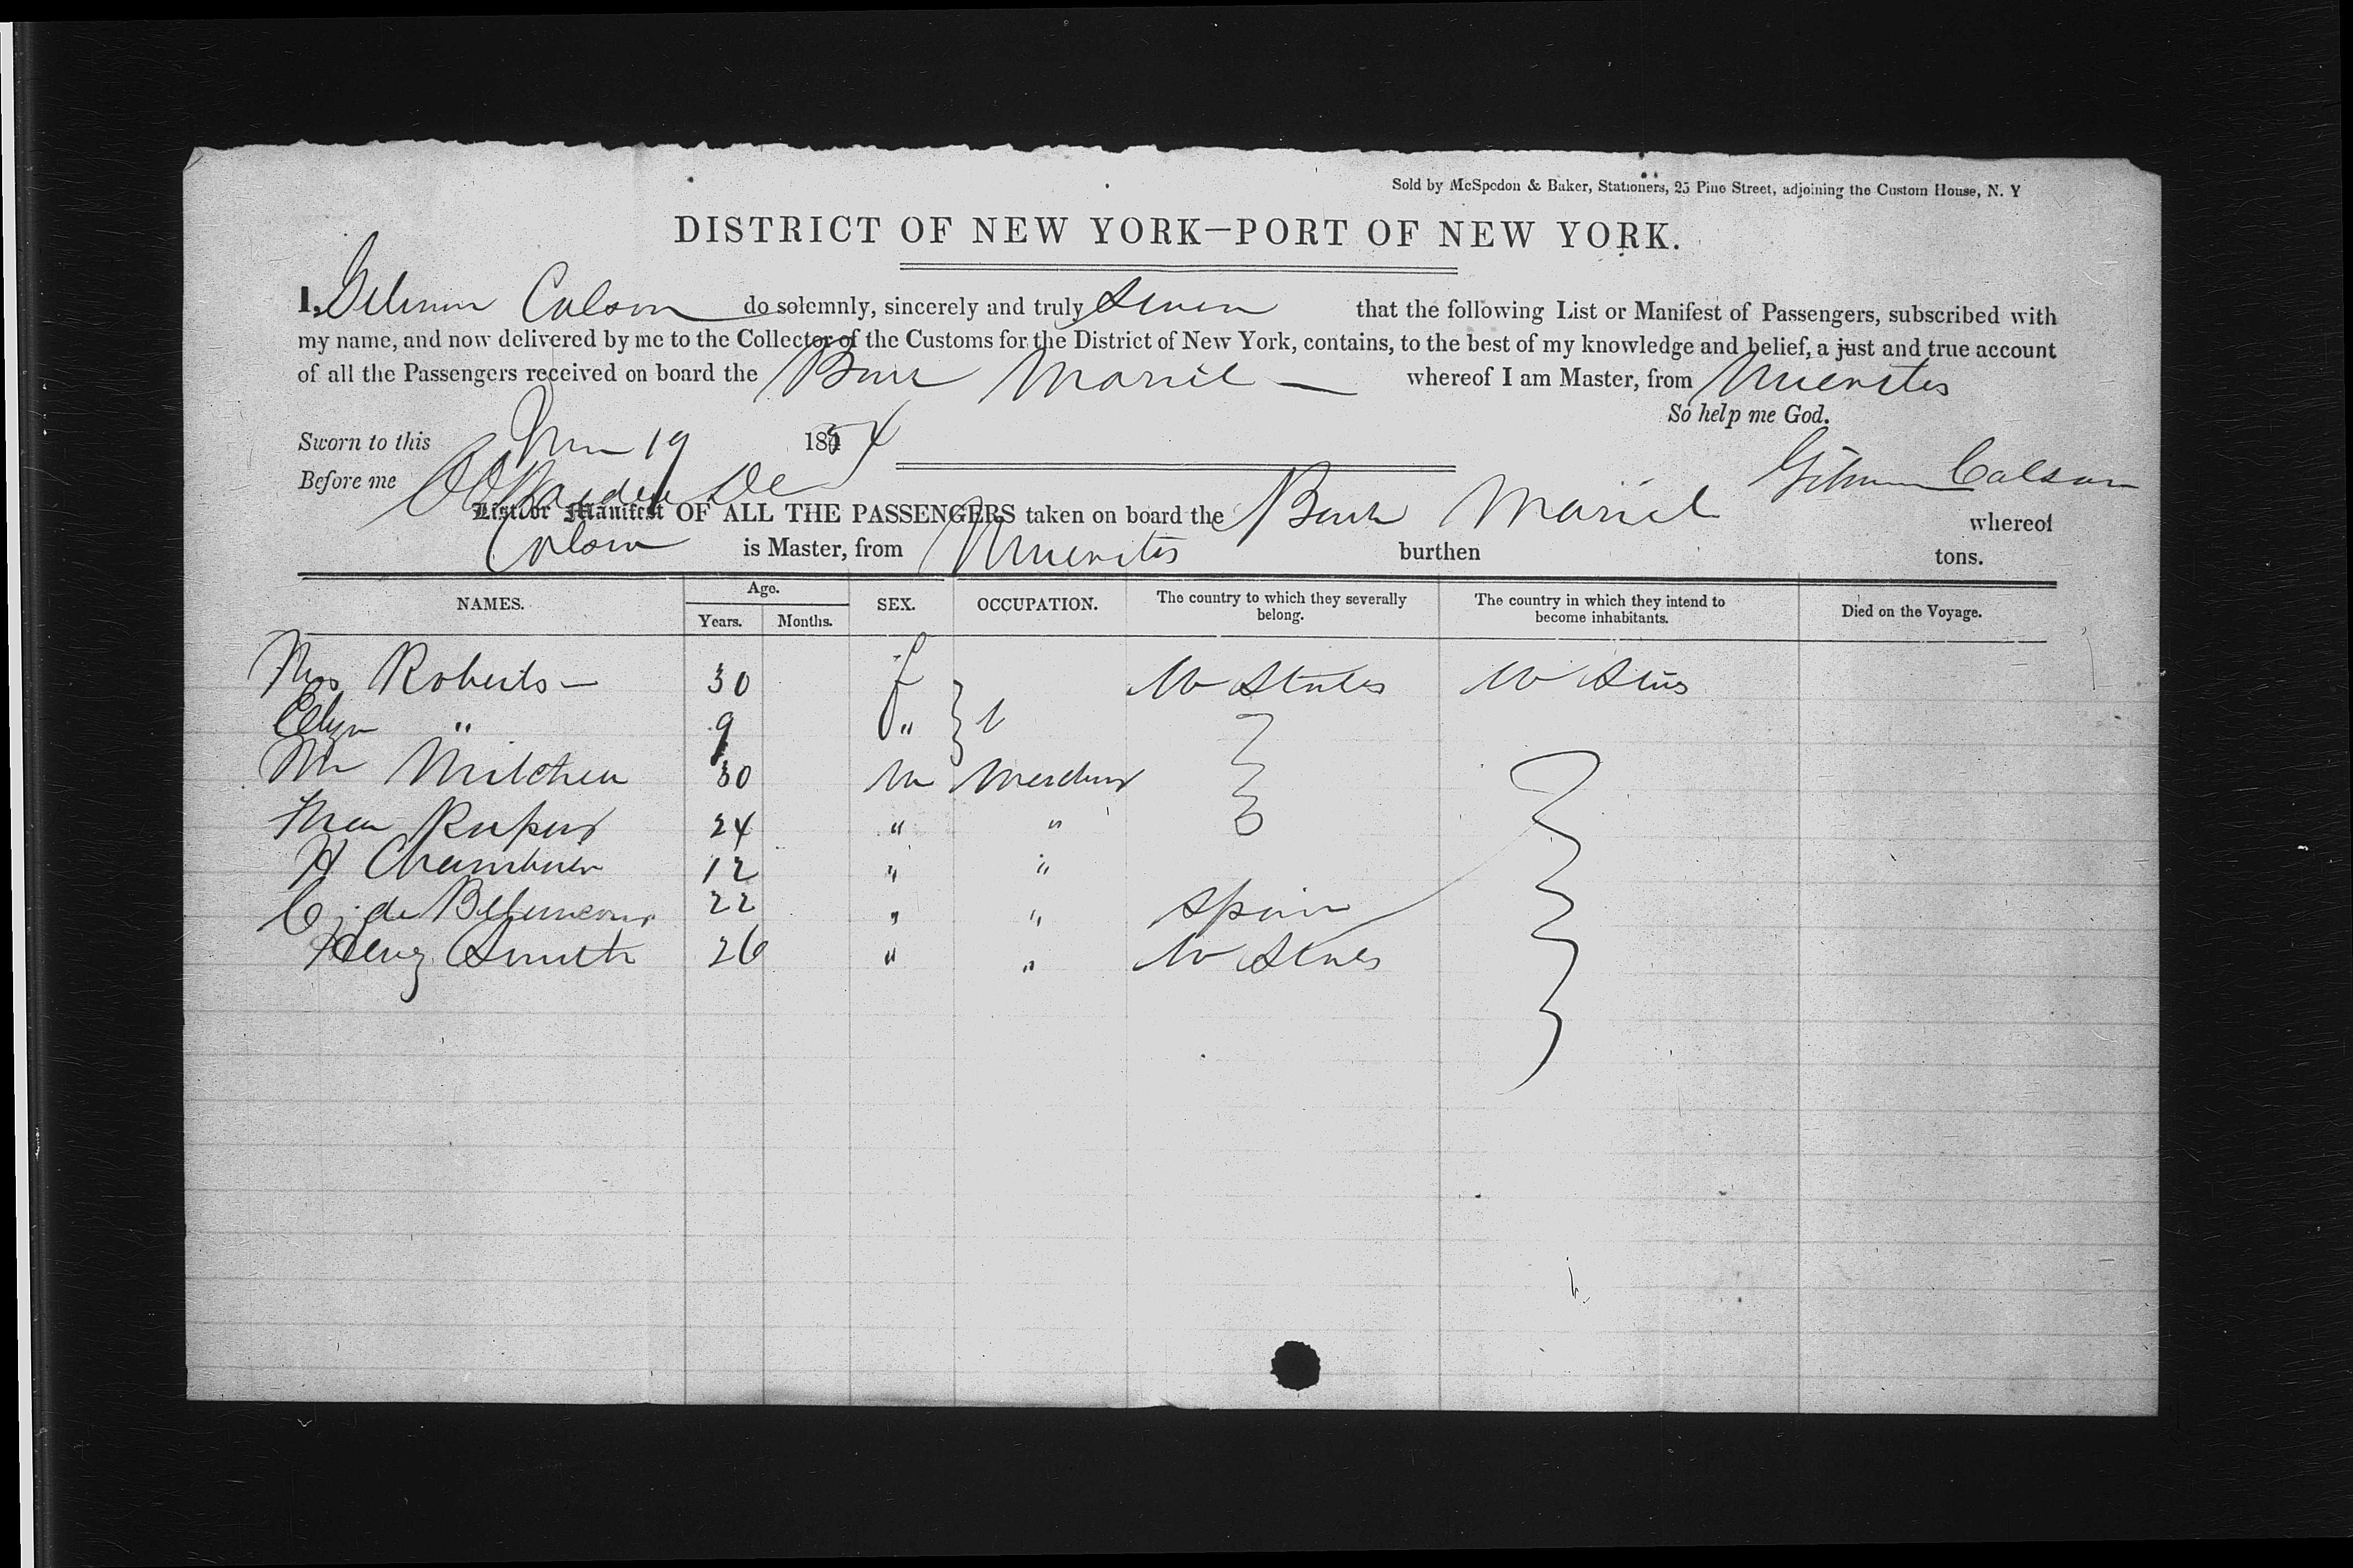 Sold by McSpedon & Baker, Stationers, 25 Pine Street, adjoining the Custom House, N. Y
DISTRICT OF NEW YORK—PORT OF NEW YORK.
I, Gilman Colson do solemnly, sincerely and truly swear that the following List or Manifest of Passengers, subscribed with
my name, and now delivered by me to the Collector of the Customs for the District of New York, contains, to the best of my knowledge and belief, a just and true account
of all the Passengers received on board the Bark Mariel — whereof I am Master, from Nuevitas
So help me God.
Sworn to this 19 1854
Before me
Gilman Colson
List or Manifest OF ALL THE PASSENGERS taken on board the Bark Mariel whereof
Colson is Master, from Nuevitas burthen tons.
NAMES. Age. Years. Months. SEX. OCCUPATION. The country to which they severally belong. The country in which they intend to become inhabitants. Died on the Voyage.
Mrs Roberts — 30 f U States U Sts
" 9 "
Mr Mitchell 30 M Merchant
24 " "
H 12 " "
C. de 22 " " Spain
Henry Smith 26 " " U States